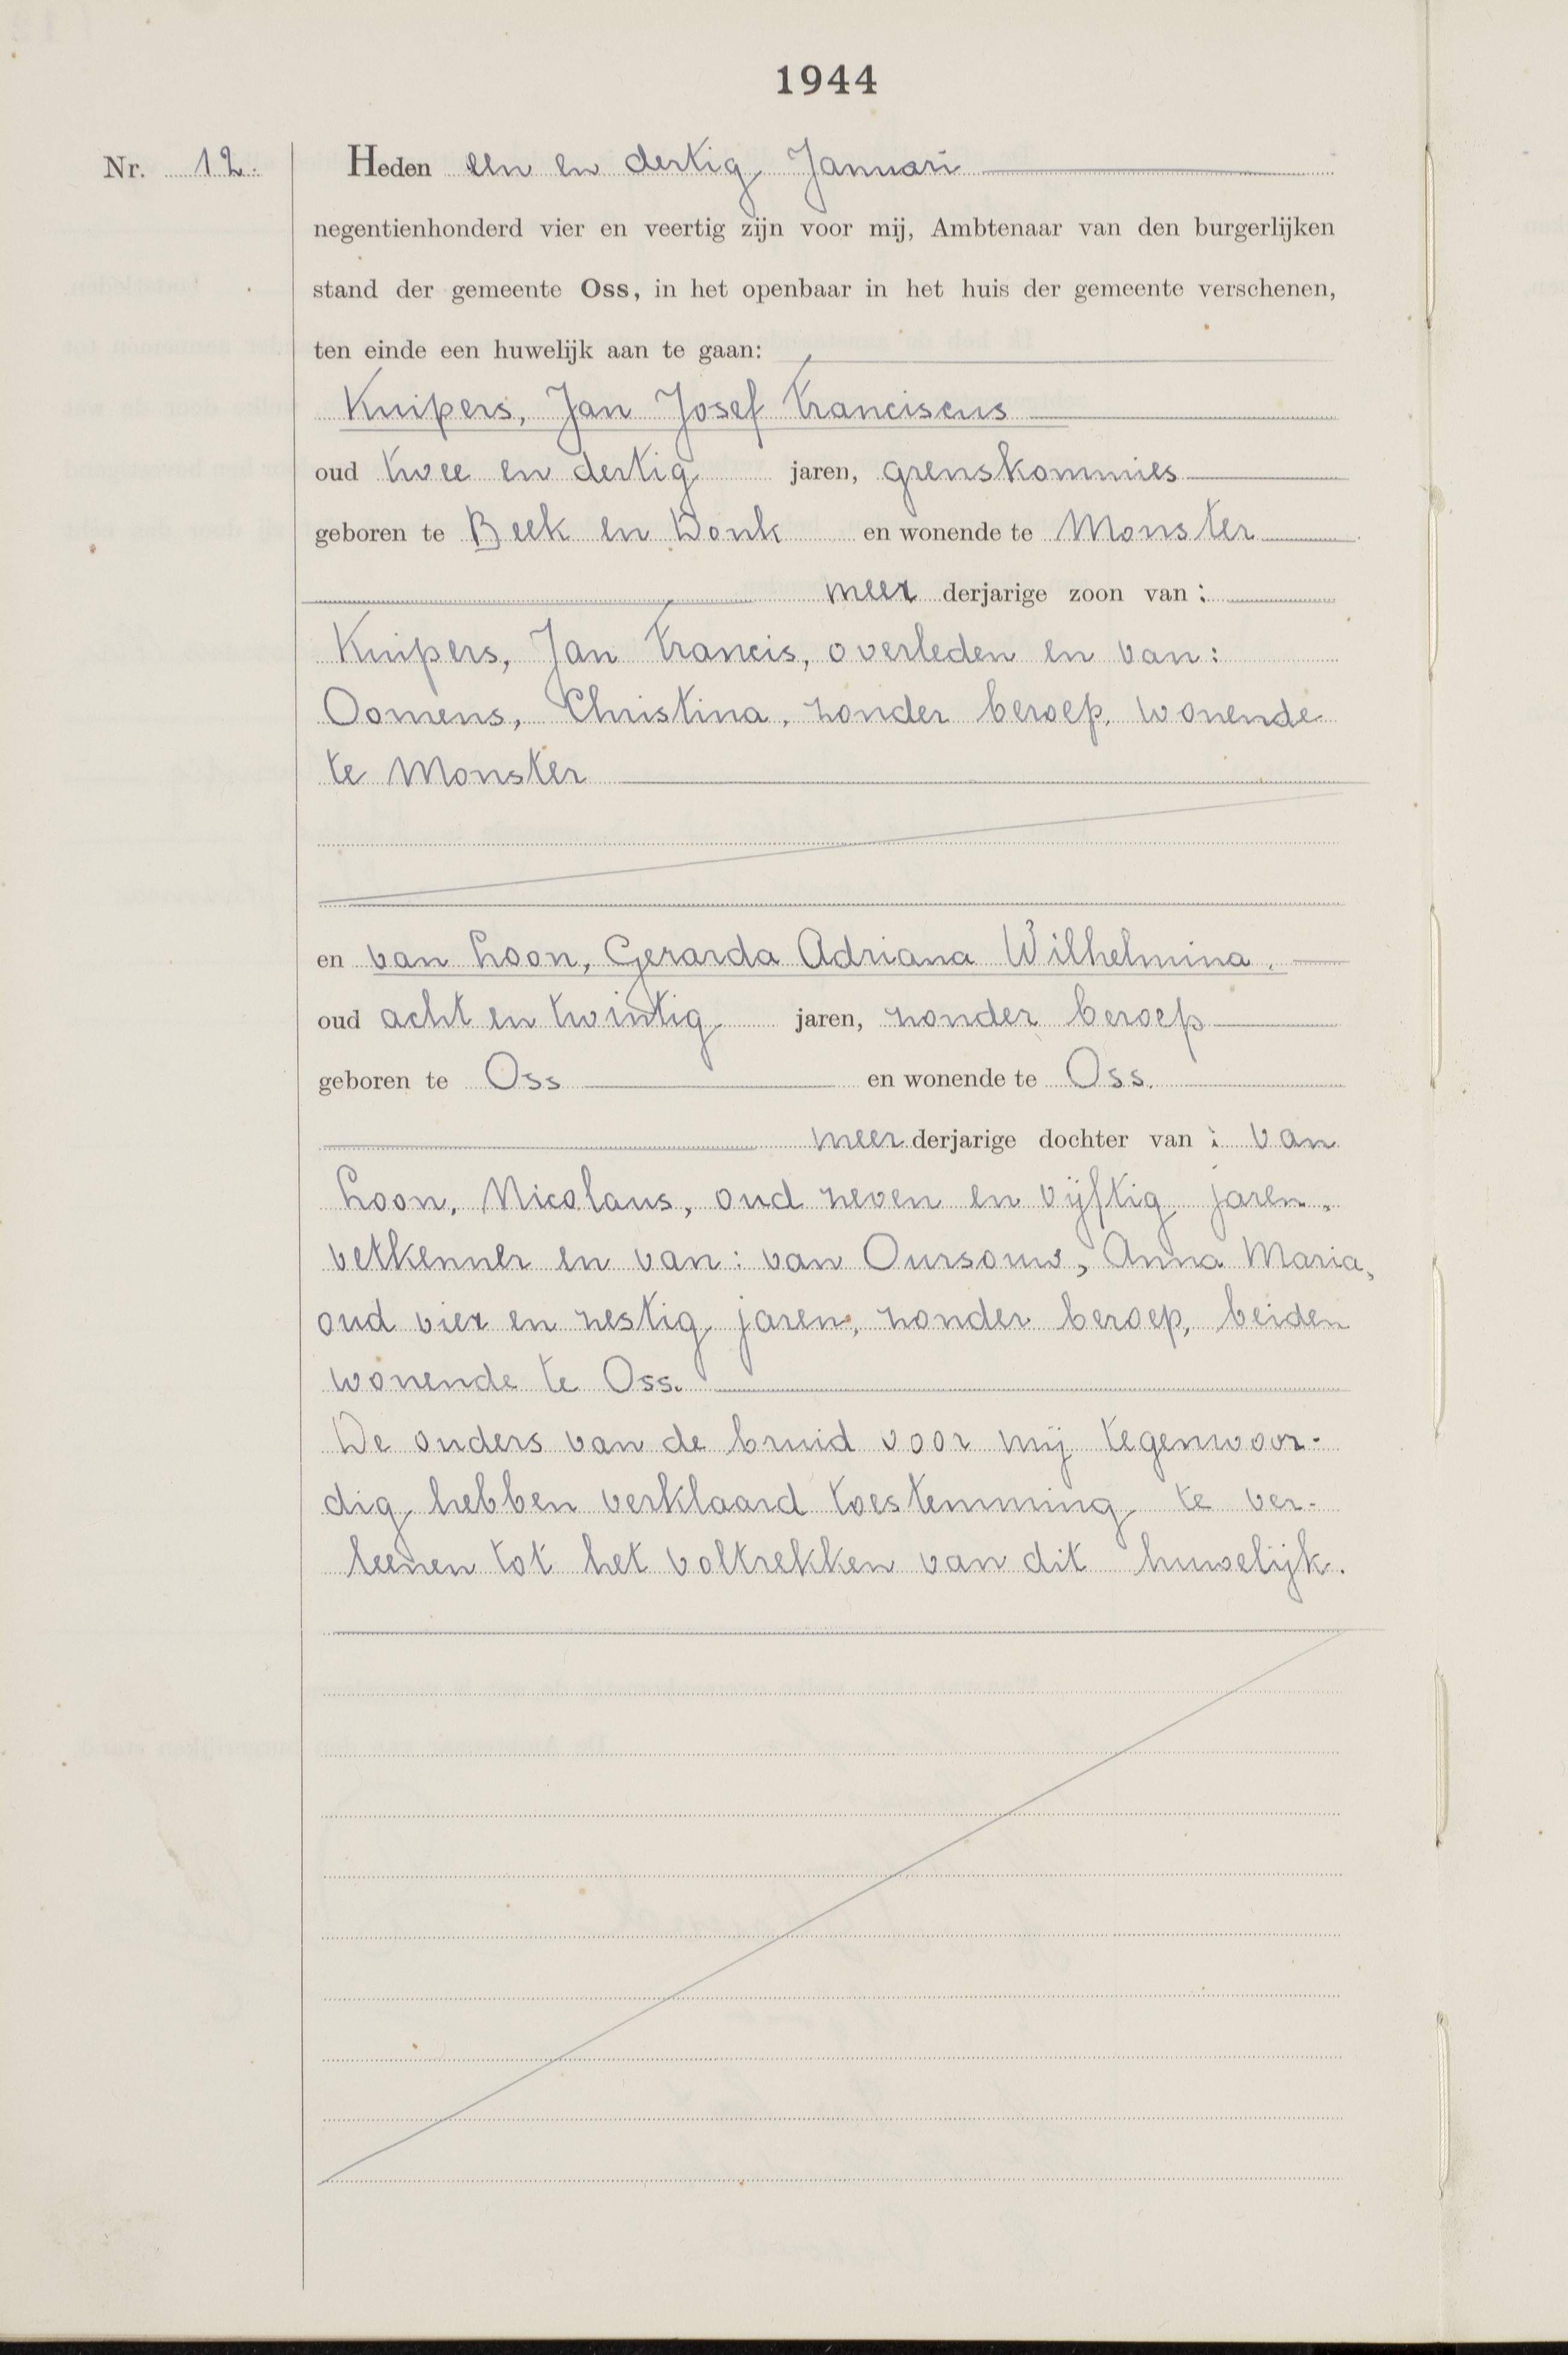 1944
Nr. 12.
Heden een en dertig Januari
negentienhonderd vier en veertig zijn voor mij, Ambtenaar van den burgerlijken
stand der gemeente Oss, in het openbaar in het huis der gemeente verschenen,
ten einde een huwelijk aan te gaan:
Kuipers, Jan Josef Franciscus
oud twee en dertig jaren, grenskommies
geboren te Beek en Donk en wonende te Monster
meer derjarige zoon van :
Kuipers, Jan Francis, overleden en van:
Oomens, Christina, zonder beroep, wonende
te Monster
en van Loon, Gerarda Adriana Wilhelmina,
oud acht en twintig jaren, zonder beroep
geboren te Oss en wonende te Oss.
meer derjarige dochter van : van
Loon, Nicolaus, oud zeven en vijftig jaren,
vetkenner en van: van Oursouw, Anna Maria,
oud vier en zestig jaren, zonder beroep, beiden
wonende te Oss.
De ouders van de bruid voor mij tegenwoor-
dig hebben verklaard toestemming te ver-
leenen tot het voltrekken van dit huwelijk.